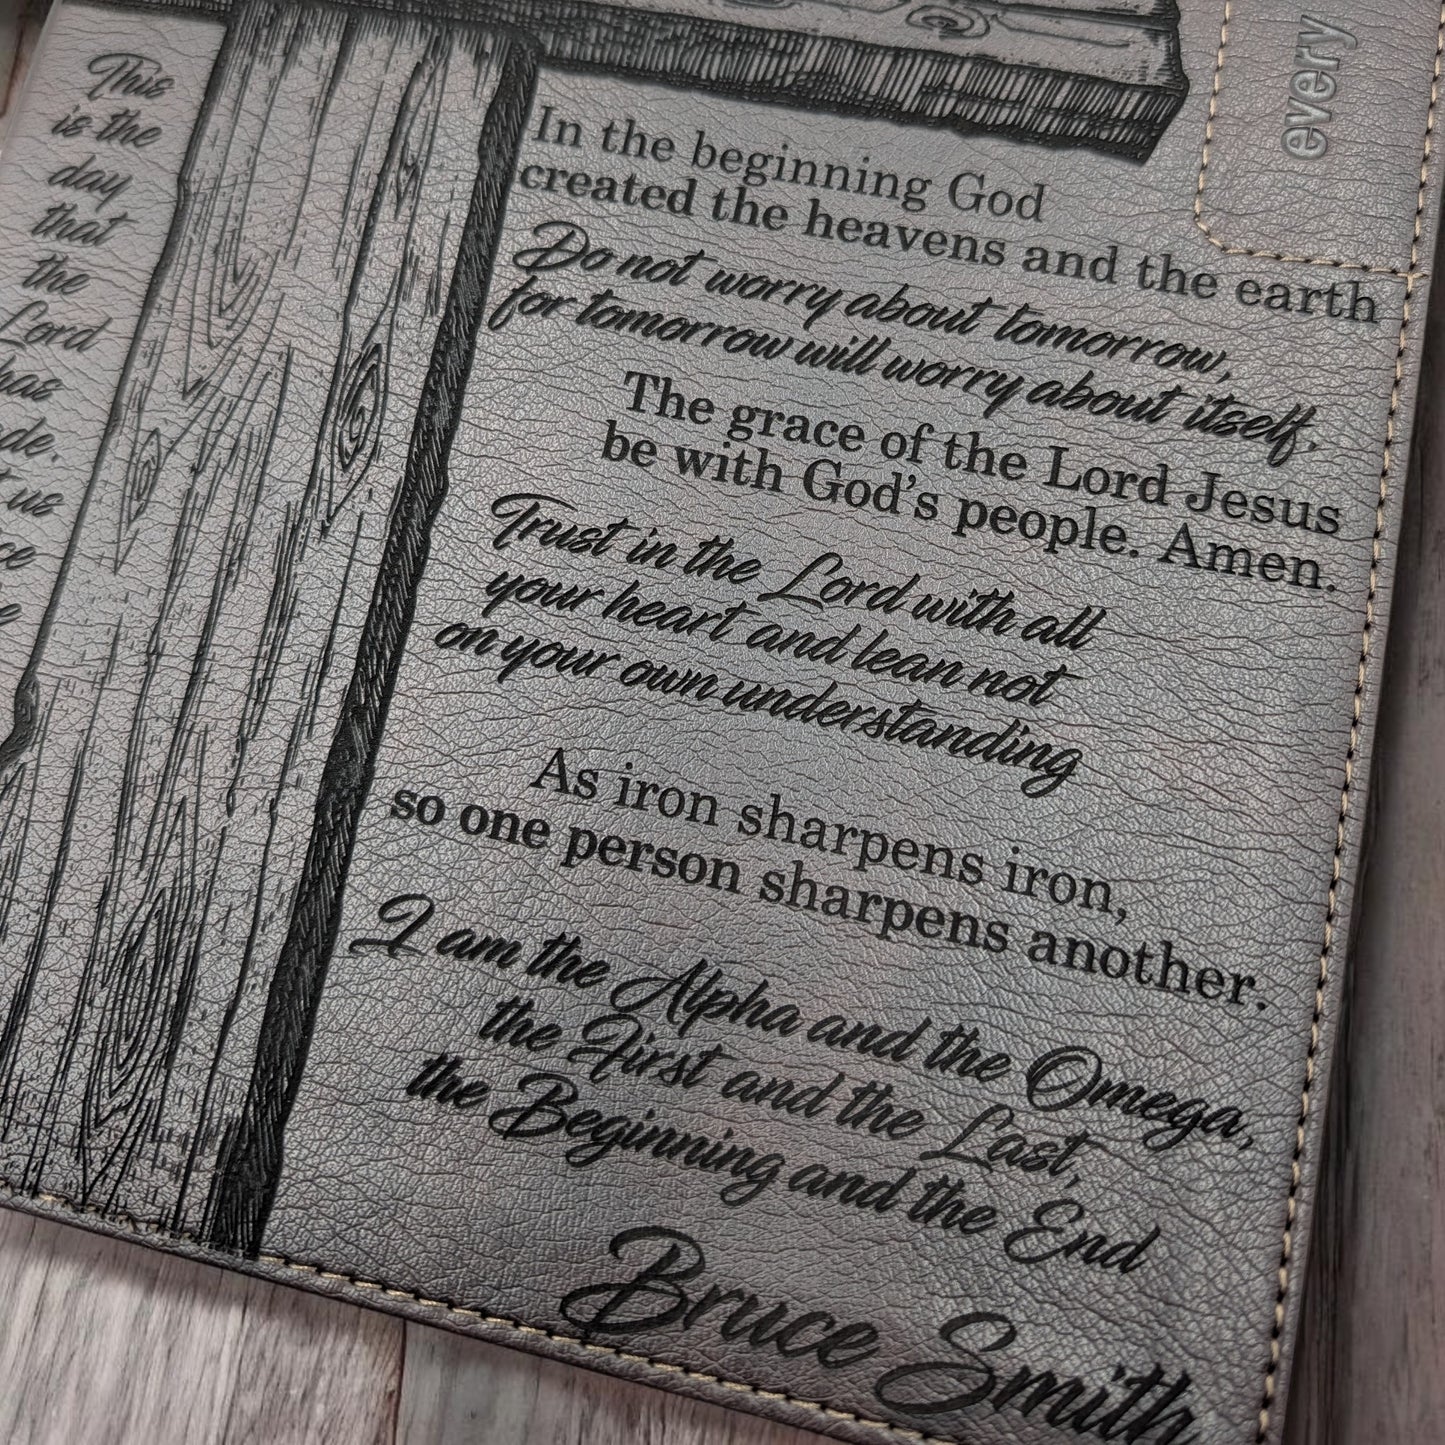 This
is the
day
that
the
Lord
us
every
In the beginning God
created the heavens and the earth
Do not worry about tomorrow,
for tomorrow will worry about itself.
The grace of the Lord Jesus
be with God's people. Amen.
Trust in the Lord with all
your heart and lean not
on your own understanding
As iron sharpens iron,
so one person sharpens another.
I am the Alpha and the Omega,
the First and the Last,
the Beginning and the End
Bruce Smith